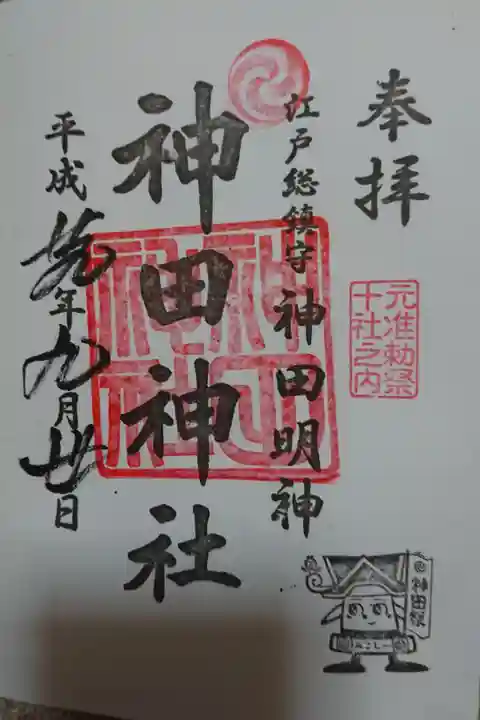 奉拝
元准勅祭
十社之内
江戸総鎮守 神田明神
神田神社
平成 年九月廿日
神田祭
みこしー